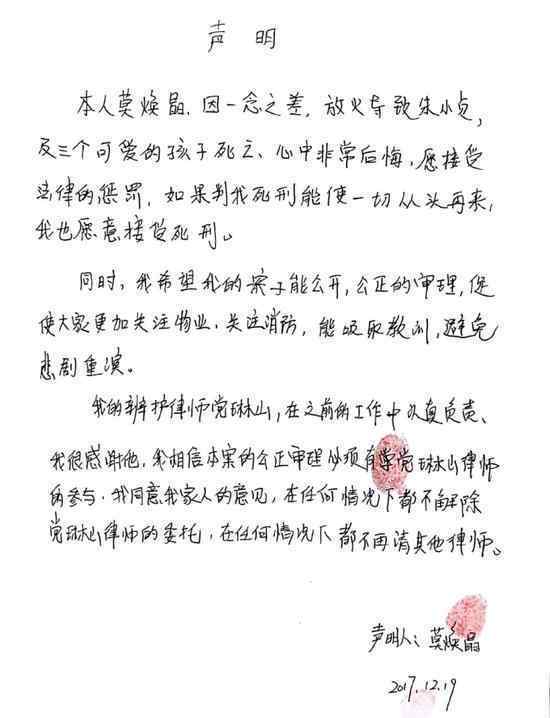 声明
本人莫焕晶，因一念之差，放火导致朱小贞，
及三个可爱的孩子死亡、心中非常后悔，愿接受
法律的惩罚，如果判我死刑能使一切从头再来，
我也愿意接受死刑。
同时，我希望我的案子能公开，公正的审理，促
使大家更加关注物业、关注消防，能吸取教训，避免
悲剧重演。
我的辩护律师党琳山，在之前的工作中认真负责、
我很感谢他，我相信本案的公正审理必须有党琳山律师
的参与，我同意我家人的意见，在任何情况下都不解除
党琳山律师的委托，在任何情况下都不再请其他律师。
声明人：莫焕晶
2017.12.19